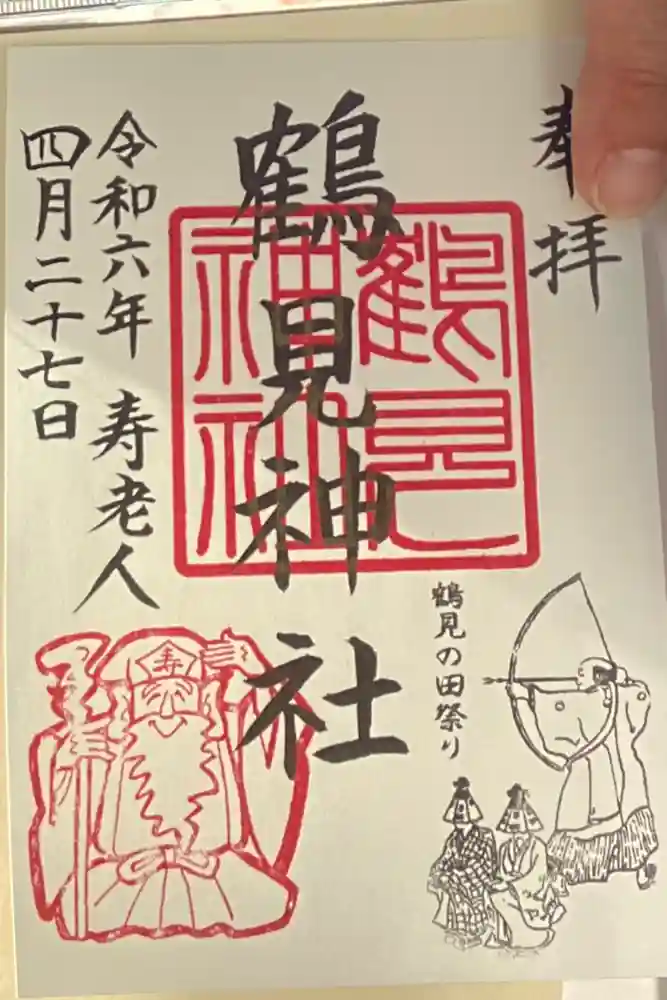 奉拝
鶴見神社
鶴見神社
令和六年 寿老人
四月二十七日
鶴見の田祭り
寿